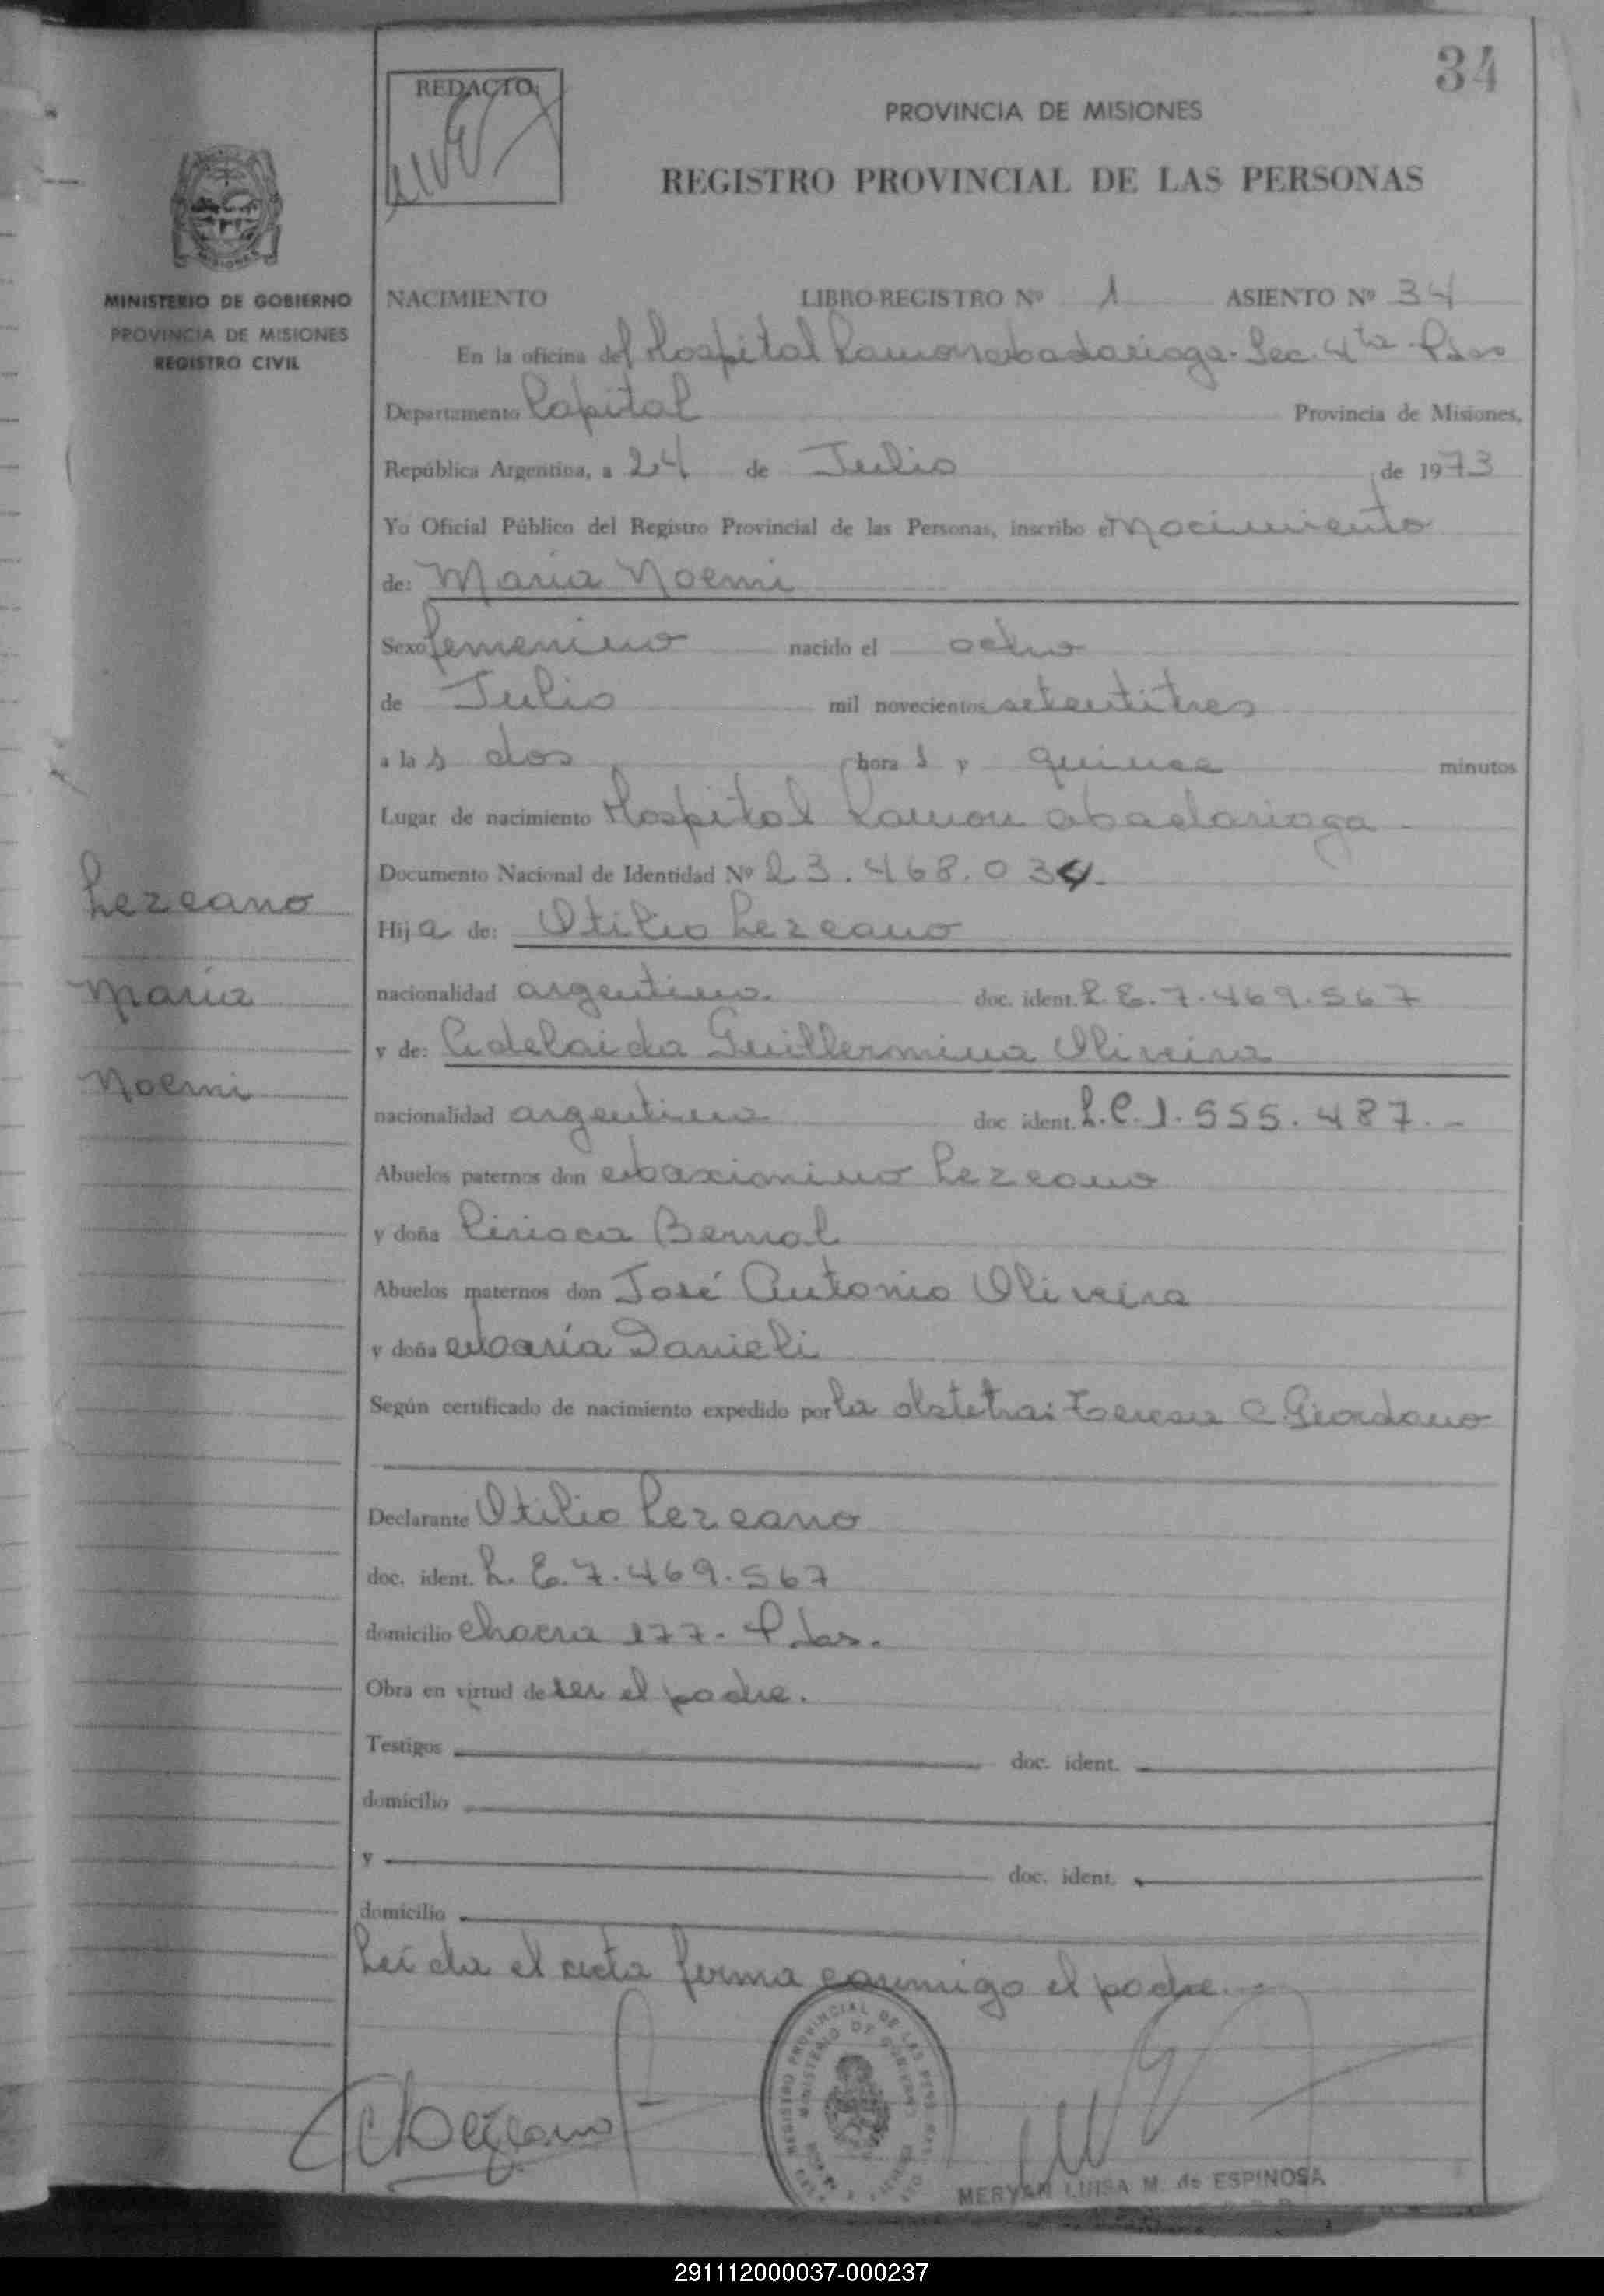 34
REDACTO
PROVINCIA DE MISIONES
REGISTRO PROVINCIAL DE LAS PERSONAS
MISIONES
MINISTERIO DE GOBIERNO
PROVINCIA DE MISIONES
REGISTRO CIVIL
NACIMIENTO LIBRO-REGISTRO Nº 1 ASIENTO Nº 34
En la oficina del Hospital Ramon Madariaga - Sec. 4ta Pdas
Departamento Capital Provincia de Misiones,
República Argentina, a 24 de Julio de 1973
Yo Oficial Público del Registro Provincial de las Personas, inscribo el Nacimiento
de: Maria Noemi
Sexo femenino nacido el ocho
de Julio mil novecientos setentitres
a las dos horas y quince minutos
Lugar de nacimiento Hospital Ramon Madariaga
Documento Nacional de Identidad Nº 23.468.034.
Lezcano
Maria
Noemi
Hija de: Otilio Lezcano
nacionalidad argentino. doc. ident. L.E. 7.469.567
y de: Adelaida Guillermina Oliveira
nacionalidad argentina doc ident. L.C. 1.555.487.-
Abuelos paternos don Maximino Lezcano
y doña Ciriaca Bernal
Abuelos maternos don José Antonio Oliveira
y doña María Danieli
Según certificado de nacimiento expedido por la obstetra: Teresa C. Giordano
Declarante Otilio Lezcano
doc. ident. L.E. 7.469.567
domicilio Chacra 177 - Pdas.
Obra en virtud de ser el padre.
Testigos doc. ident.
domicilio
y doc. ident.
domicilio
Leída el acta firma conmigo el padre.-
REGISTRO PROVINCIAL DE LAS PERSONAS
MINISTERIO DE GOBIERNO
MERYAN LUISA M. de ESPINOSA
291112000037-000237